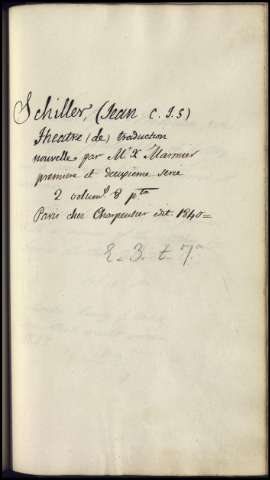 Schiller, (Jean C. J. S)
Theatre (de) traduction
nouvelle par Mr X Marmier
premiere et deuxieme serie
2 volum.s 8 pta
Paris chez Charpentier edit 1840=
E- 3. t. 7.a